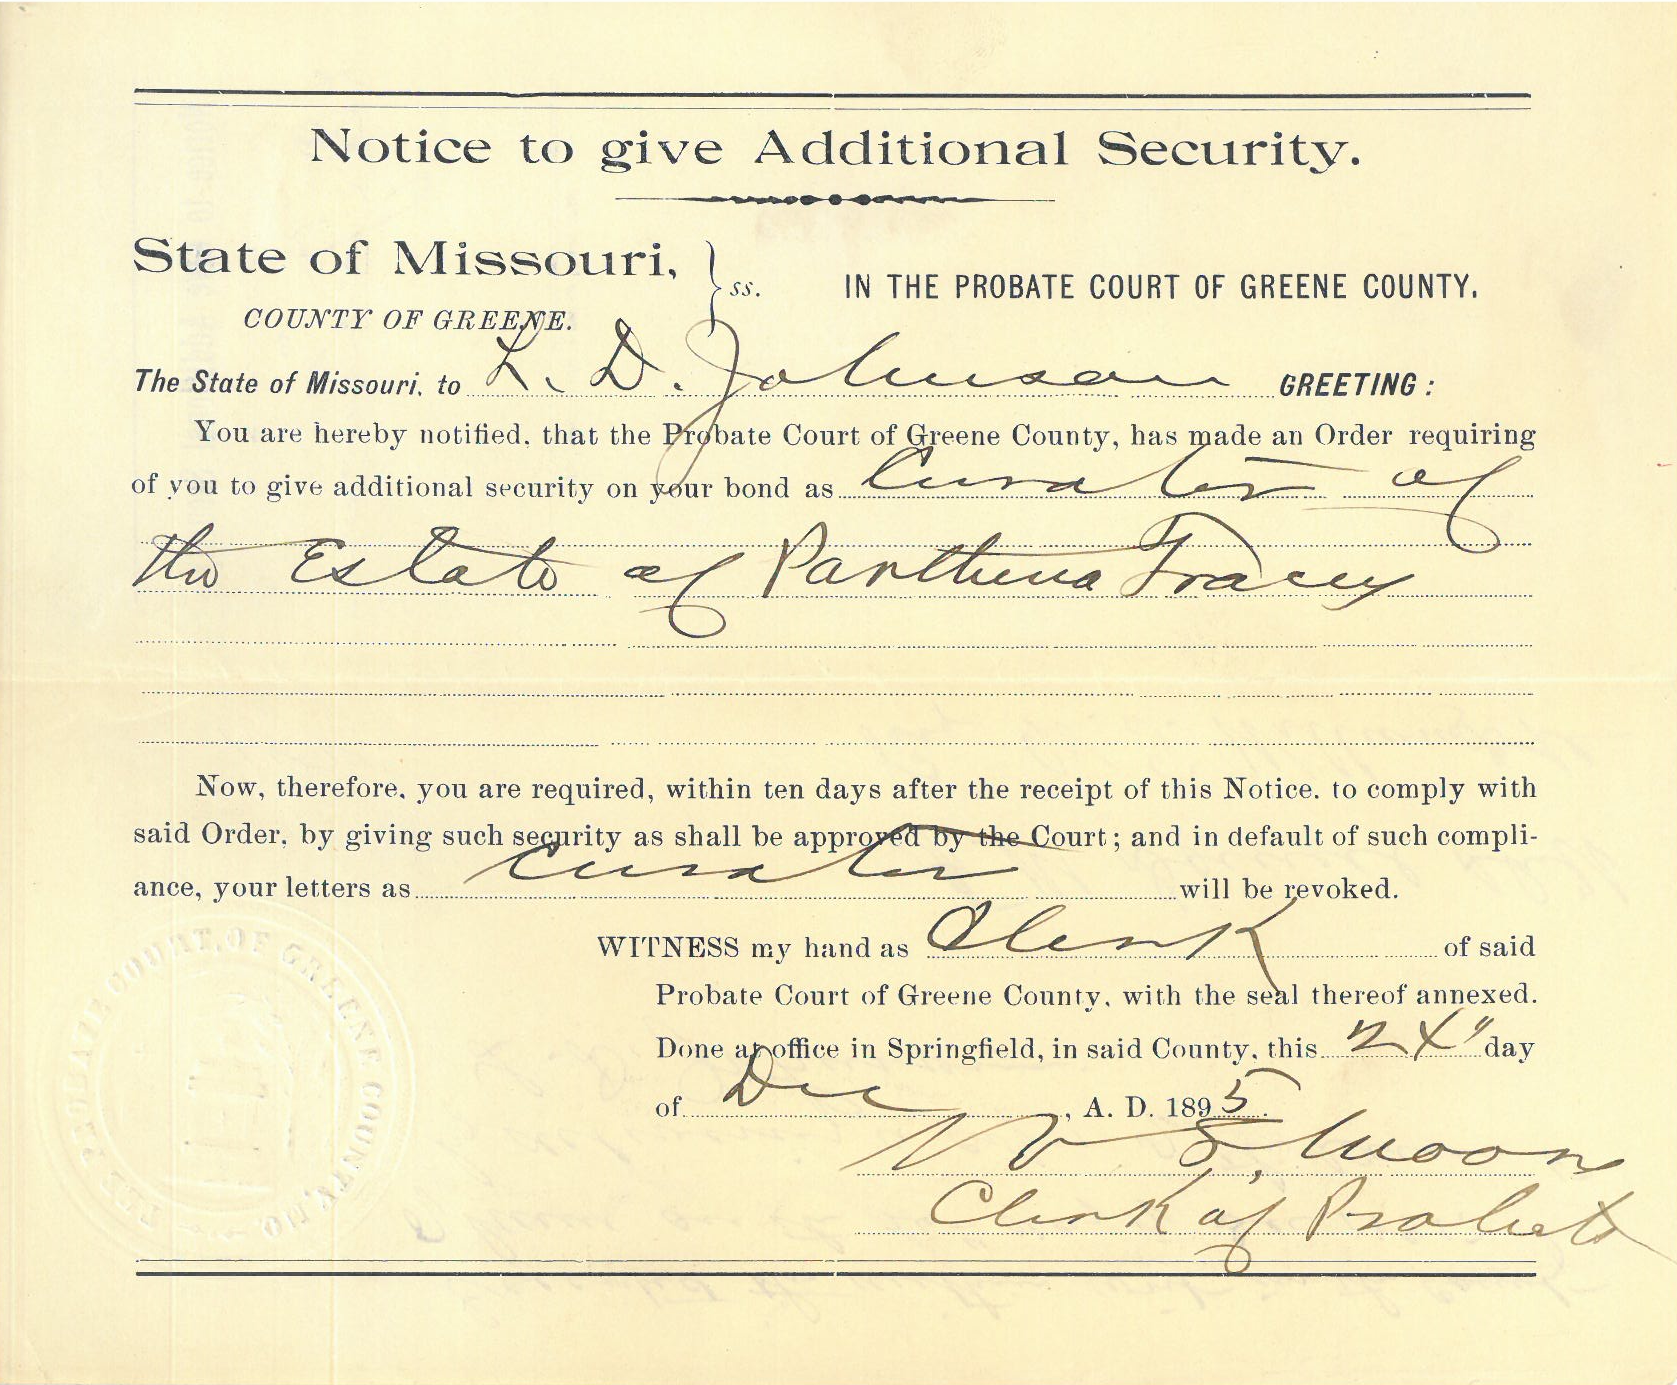 Notice to give Additional Security.
State of Missouri, } ss. IN THE PROBATE COURT OF GREENE COUNTY.
COUNTY OF GREENE.
The State of Missouri, to L. D. Johnson GREETING:
You are hereby notified, that the Probate Court of Greene County, has made an Order requiring
of you to give additional security on your bond as Curator of
the Estate of Parthena Tracy
Now, therefore, you are required, within ten days after the receipt of this Notice, to comply with
said Order, by giving such security as shall be approved by the Court; and in default of such compli-
ance, your letters as curator will be revoked.
WITNESS my hand as Clerk of said
Probate Court of Greene County, with the seal thereof annexed.
Done at office in Springfield, in said County, this 24" day
of Dec, A. D. 1895.
Moon
Clerk of Probate
THE PROBATE COURT, OF GREENE COUNTY, MO.